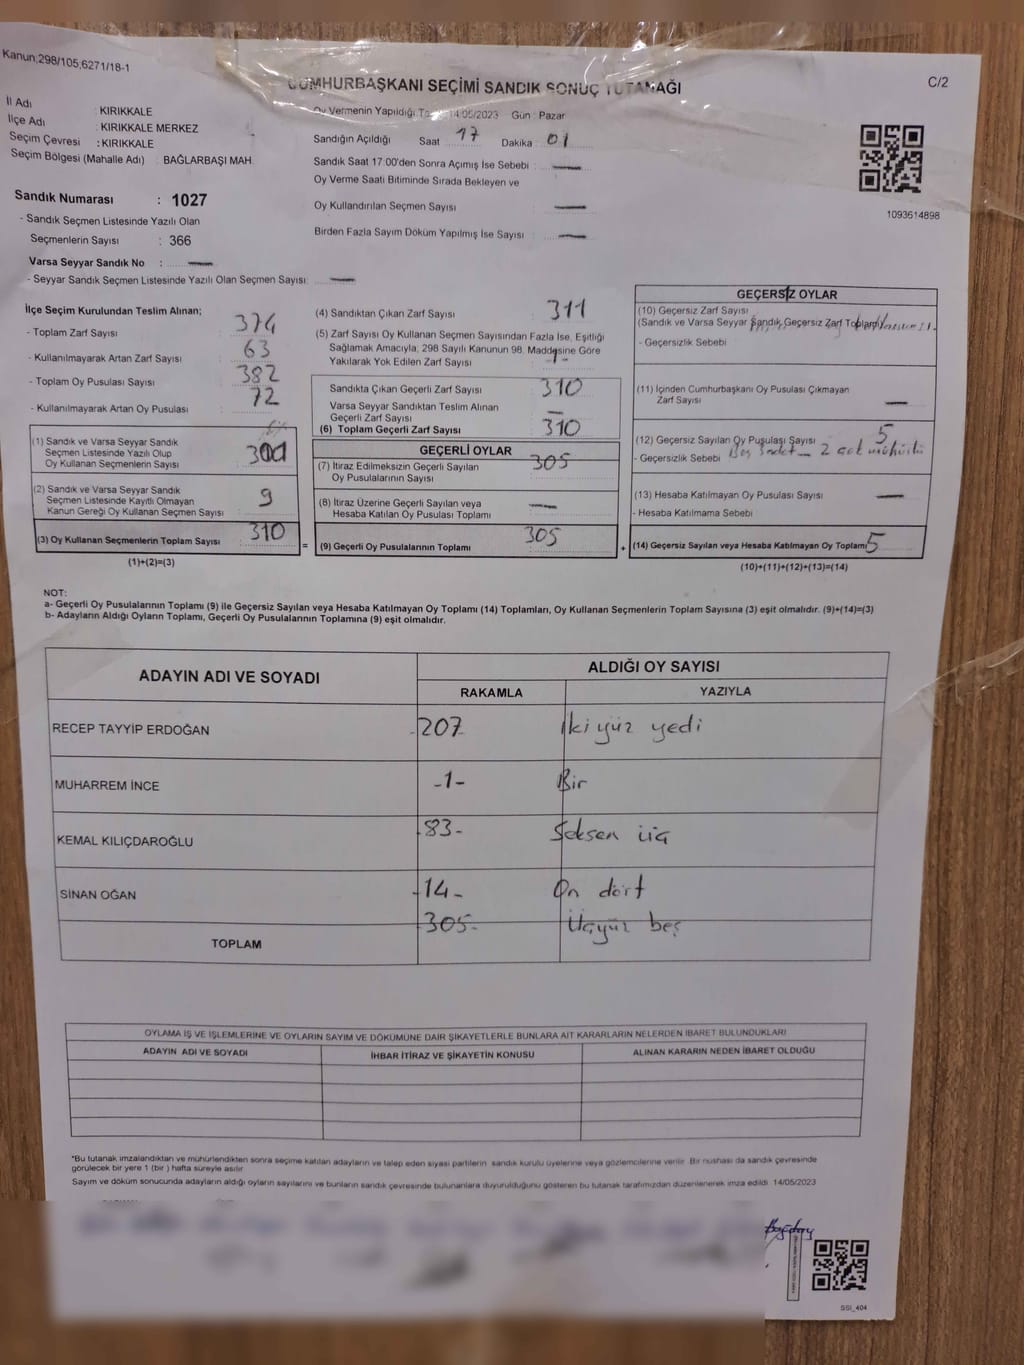 Kanun;298/105,6271/18-1
CUMHURBAŞKANI SEÇİMİ SANDIK SONUÇ TUTANAĞI
C/2
İl Adı : KIRIKKALE
İlçe Adı : KIRIKKALE MERKEZ
Seçim Çevresi : KIRIKKALE
Seçim Bölgesi (Mahalle Adı) : BAĞLARBAŞI MAH.
Oy Vermenin Yapıldığı 14/05/2023 Gün : Pazar
Sandığın Açıldığı Saat 17 Dakika : 01
Sandık Saat 17:00'den Sonra Açımış İse Sebebi : —
Oy Verme Saati Bitiminde Sırada Bekleyen ve
Oy Kullandırılan Seçmen Sayısı : —
Birden Fazla Sayım Döküm Yapılmış İse Sayısı : —
1093614898
Sandık Numarası : 1027
- Sandık Seçmen Listesinde Yazılı Olan
Seçmenlerin Sayısı : 366
Varsa Seyyar Sandık No : —
- Seyyar Sandık Seçmen Listesinde Yazılı Olan Seçmen Sayısı: —
İlçe Seçim Kurulundan Teslim Alınan;
- Toplam Zarf Sayısı 374
- Kullanılmayarak Artan Zarf Sayısı 63
- Toplam Oy Pusulası Sayısı 382
- Kullanılmayarak Artan Oy Pusulası 72
(1) Sandık ve Varsa Seyyar Sandık
Seçmen Listesinde Yazılı Olup
Oy Kullanan Seçmenlerin Sayısı
(2) Sandık ve Varsa Seyyar Sandık
Seçmen Listesinde Kayıtlı Olmayan
Kanun Gereği Oy Kullanan Seçmen Sayısı 9
(3) Oy Kullanan Seçmenlerin Toplam Sayısı 310
(1)+(2)=(3)
(4) Sandıktan Çıkan Zarf Sayısı 311
(5) Zarf Sayısı Oy Kullanan Seçmen Sayısından Fazla İse, Eşitliği
Sağlamak Amacıyla; 298 Sayılı Kanunun 98. Maddesine Göre
Yakılarak Yok Edilen Zarf Sayısı -1-
Sandıkta Çıkan Geçerli Zarf Sayısı 310
Varsa Seyyar Sandıktan Teslim Alınan
Geçerli Zarf Sayısı —
(6) Toplam Geçerli Zarf Sayısı 310
GEÇERLİ OYLAR
(7) İtiraz Edilmeksizin Geçerli Sayılan
Oy Pusulalarının Sayısı 305
(8) İtiraz Üzerine Geçerli Sayılan veya
Hesaba Katılan Oy Pusulası Toplamı —
= (9) Geçerli Oy Pusulalarının Toplamı 305 +
GEÇERSİZ OYLAR
(10) Geçersiz Zarf Sayısı
(Sandık ve Varsa Seyyar Sandık Geçersiz Zarf Toplamı)
- Geçersizlik Sebebi
(11) İçinden Cumhurbaşkanı Oy Pusulası Çıkmayan
Zarf Sayısı —
(12) Geçersiz Sayılan Oy Pusulası Sayısı 5
- Geçersizlik Sebebi 2
(13) Hesaba Katılmayan Oy Pusulası Sayısı —
- Hesaba Katılmama Sebebi
(14) Geçersiz Sayılan veya Hesaba Katılmayan Oy Toplamı 5
(10)+(11)+(12)+(13)=(14)
NOT:
a- Geçerli Oy Pusulalarının Toplamı (9) ile Geçersiz Sayılan veya Hesaba Katılmayan Oy Toplamı (14) Toplamları, Oy Kullanan Seçmenlerin Toplam Sayısına (3) eşit olmalıdır. (9)+(14)=(3)
b- Adayların Aldığı Oyların Toplamı, Geçerli Oy Pusulalarının Toplamına (9) eşit olmalıdır.
ADAYIN ADI VE SOYADI
ALDIĞI OY SAYISI
RAKAMLA YAZIYLA
RECEP TAYYİP ERDOĞAN -207 İki yüz yedi
MUHARREM İNCE -1- Bir
KEMAL KILIÇDAROĞLU -83- Seksen üç
SİNAN OĞAN -14- On dört
TOPLAM -305- Üçyüz beş
OYLAMA İŞ VE İŞLEMLERİNE VE OYLARIN SAYIM VE DÖKÜMÜNE DAİR ŞİKAYETLERLE BUNLARA AİT KARARLARIN NELERDEN İBARET BULUNDUKLARI
ADAYIN ADI VE SOYADI İHBAR İTİRAZ VE ŞİKAYETİN KONUSU ALINAN KARARIN NEDEN İBARET OLDUĞU
*Bu tutanak imzalandıktan ve mühürlendikten sonra seçime katılan adayların ve talep eden siyasi partilerin sandık kurulu üyelerine veya gözlemcilerine verilir. Bir nüshası da sandık çevresinde
görülecek bir yere 1 (bir ) hafta süreyle asılır.
Sayım ve döküm sonucunda adayların aldığı oyların sayılarını ve bunların sandık çevresinde bulunanlara duyurulduğunu gösteren bu tutanak tarafımızdan düzenlenerek imza edildi. 14/05/2023
SSI_404